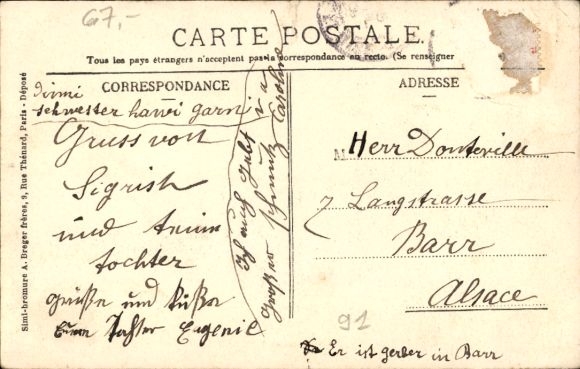 67,-
CARTE POSTALE.
Tous les pays étrangers n'acceptent pas la correspondance au recto. (Se renseigner
CORRESPONDANCE
ADRESSE
schwester hawi garn
Gruss von
Sigrish
und
tochter
Grüße und Küße
Eugenie
Ich auch
großer schmutz Caroline
M Herr Donteville
7 Langstrasse
Barr
Alsace
91
Er ist gerber in Barr
Simi-bromure A. Breger frères, 9, Rue Thénard, Paris - Déposé